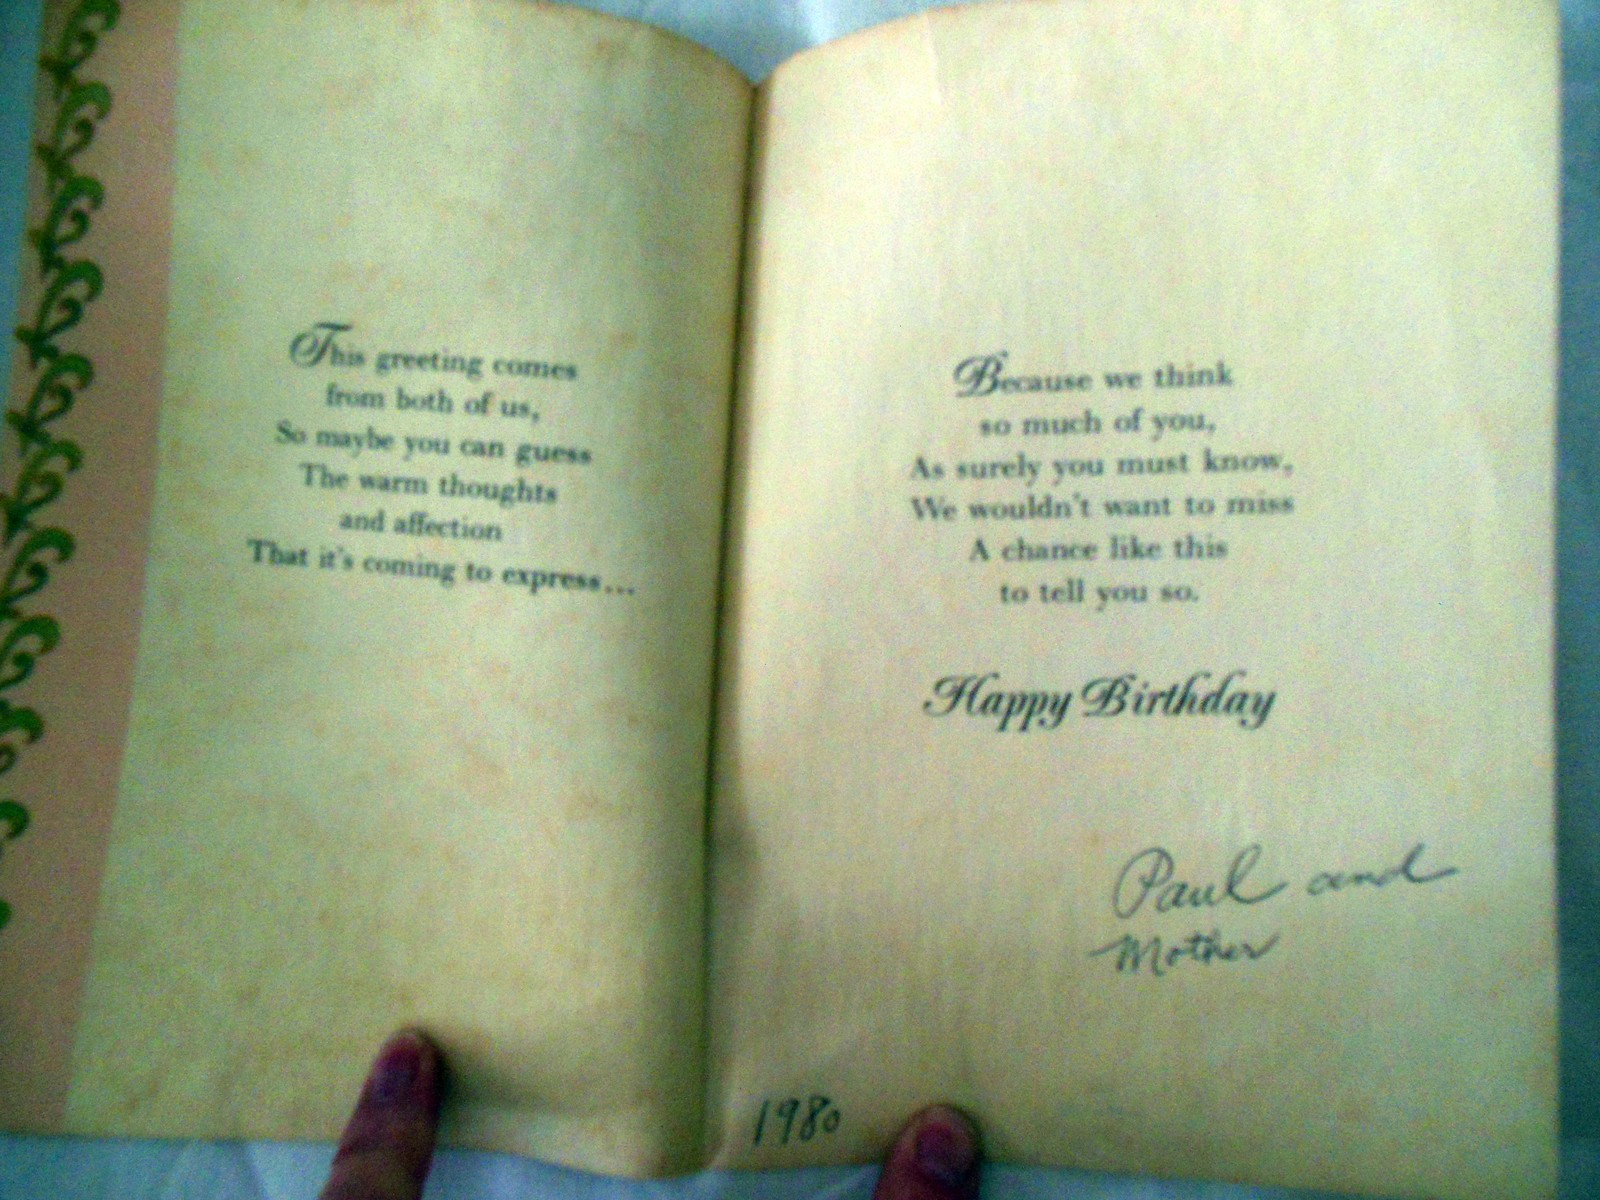 This greeting comes
from both of us,
So maybe you can guess
The warm thoughts
and affection
That it's coming to express...
Because we think
so much of you,
As surely you must know,
We wouldn't want to miss
A chance like this
to tell you so.
Happy Birthday
Paul and
Mother
1980